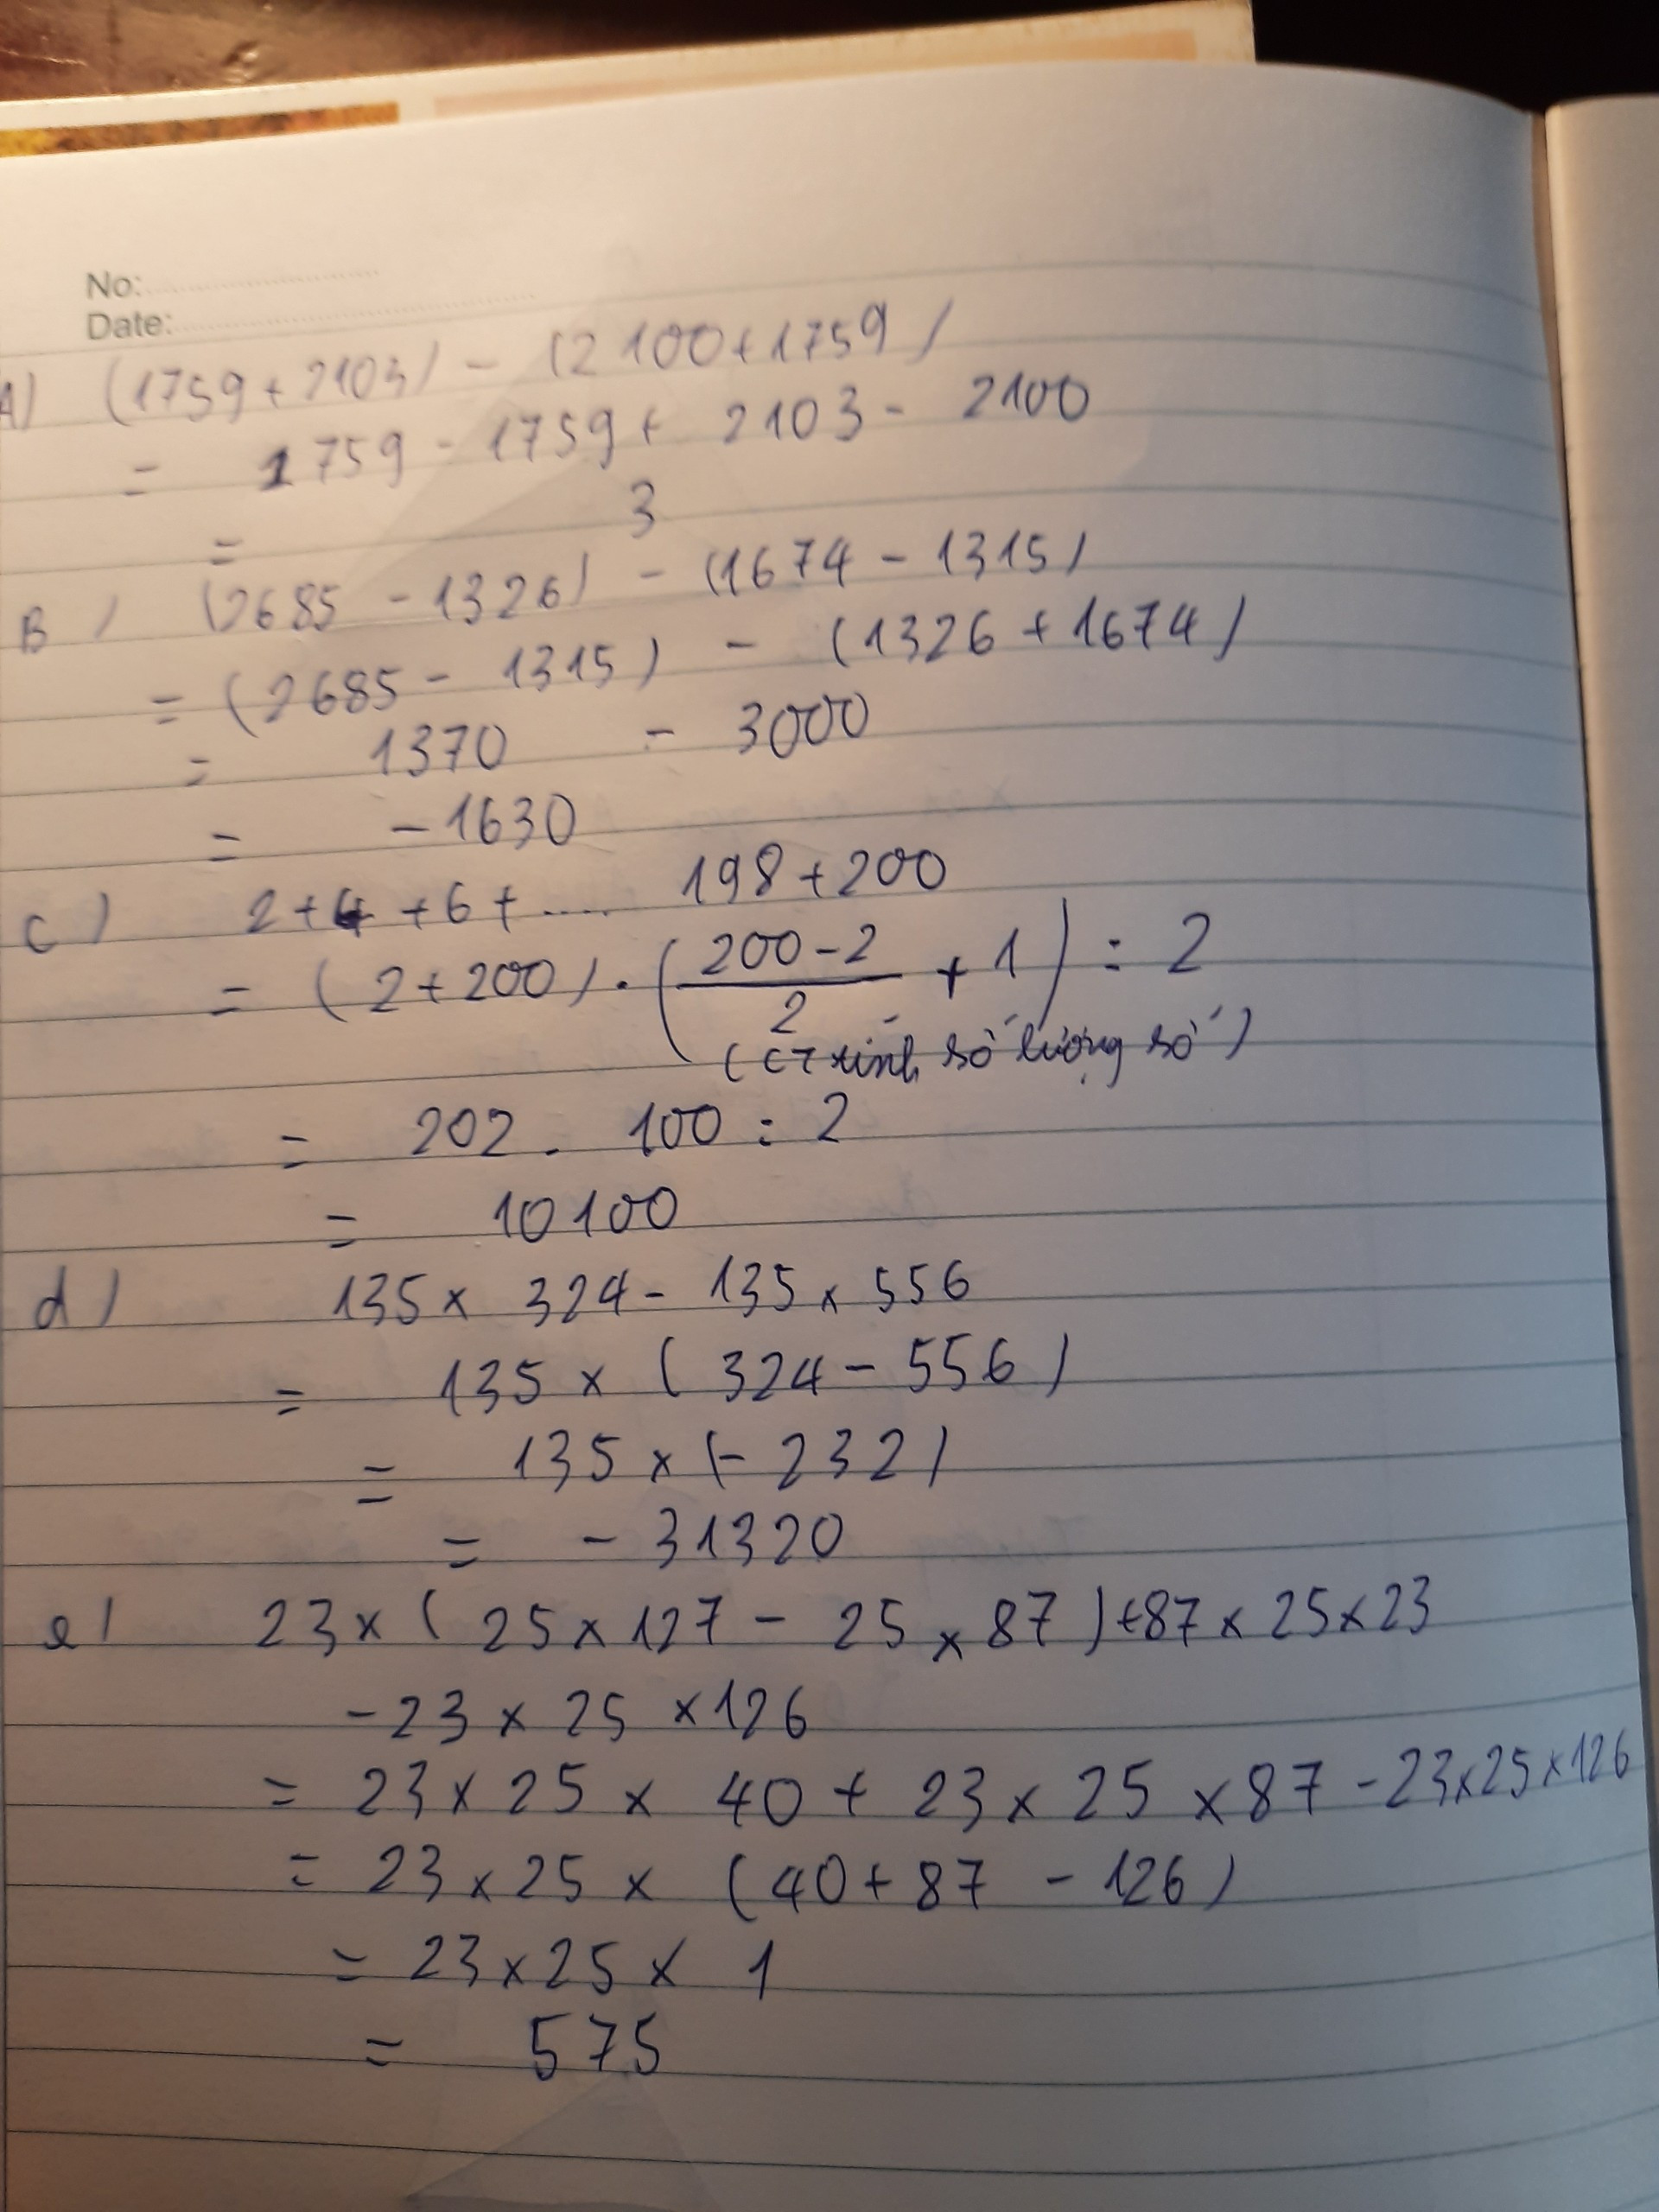 No:
Date:
A) (1759 + 2103) - (2100 + 1759)
= 1759 - 1759 + 2103 - 2100
= 3
B) (2685 - 1326) - (1674 - 1315)
= (2685 - 1315) - (1326 + 1674)
= 1370 - 3000
= -1630
c) 2 + 4 + 6 + .... 198 + 200
= (2 + 200) . ((200 - 2)/2 + 1) : 2
(CT tính số lượng số)
= 202 . 100 : 2
= 10100
d) 135 x 324 - 135 x 556
= 135 x (324 - 556)
= 135 x (- 232)
= - 31320
e) 23 x (25 x 127 - 25 x 87) + 87 x 25 x 23
- 23 x 25 x 126
= 23 x 25 x 40 + 23 x 25 x 87 - 23 x 25 x 126
= 23 x 25 x (40 + 87 - 126)
= 23 x 25 x 1
= 575